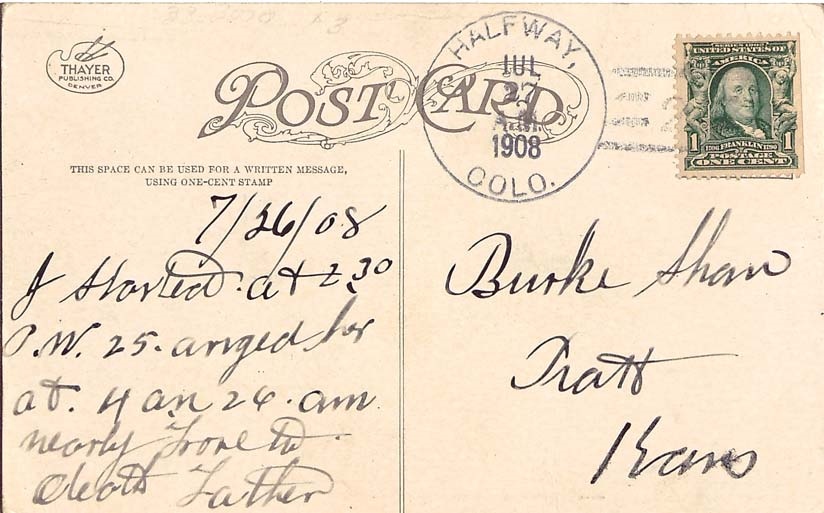 THAYER
PUBLISHING CO.
DENVER
POST CARD
HALFWAY,
JUL
27
A.M.
1908
COLO.
SERIES 1902
UNITED STATES OF
AMERICA
1706 FRANKLIN 1790
1 POSTAGE 1
ONE CENT
THIS SPACE CAN BE USED FOR A WRITTEN MESSAGE,
USING ONE-CENT STAMP
7/26/08
I Started at 2 30
P.M. 25. arived her
at. 4 am 26. am
nearly Froze to
death Father
Burke Shaw
Pratt
Kans